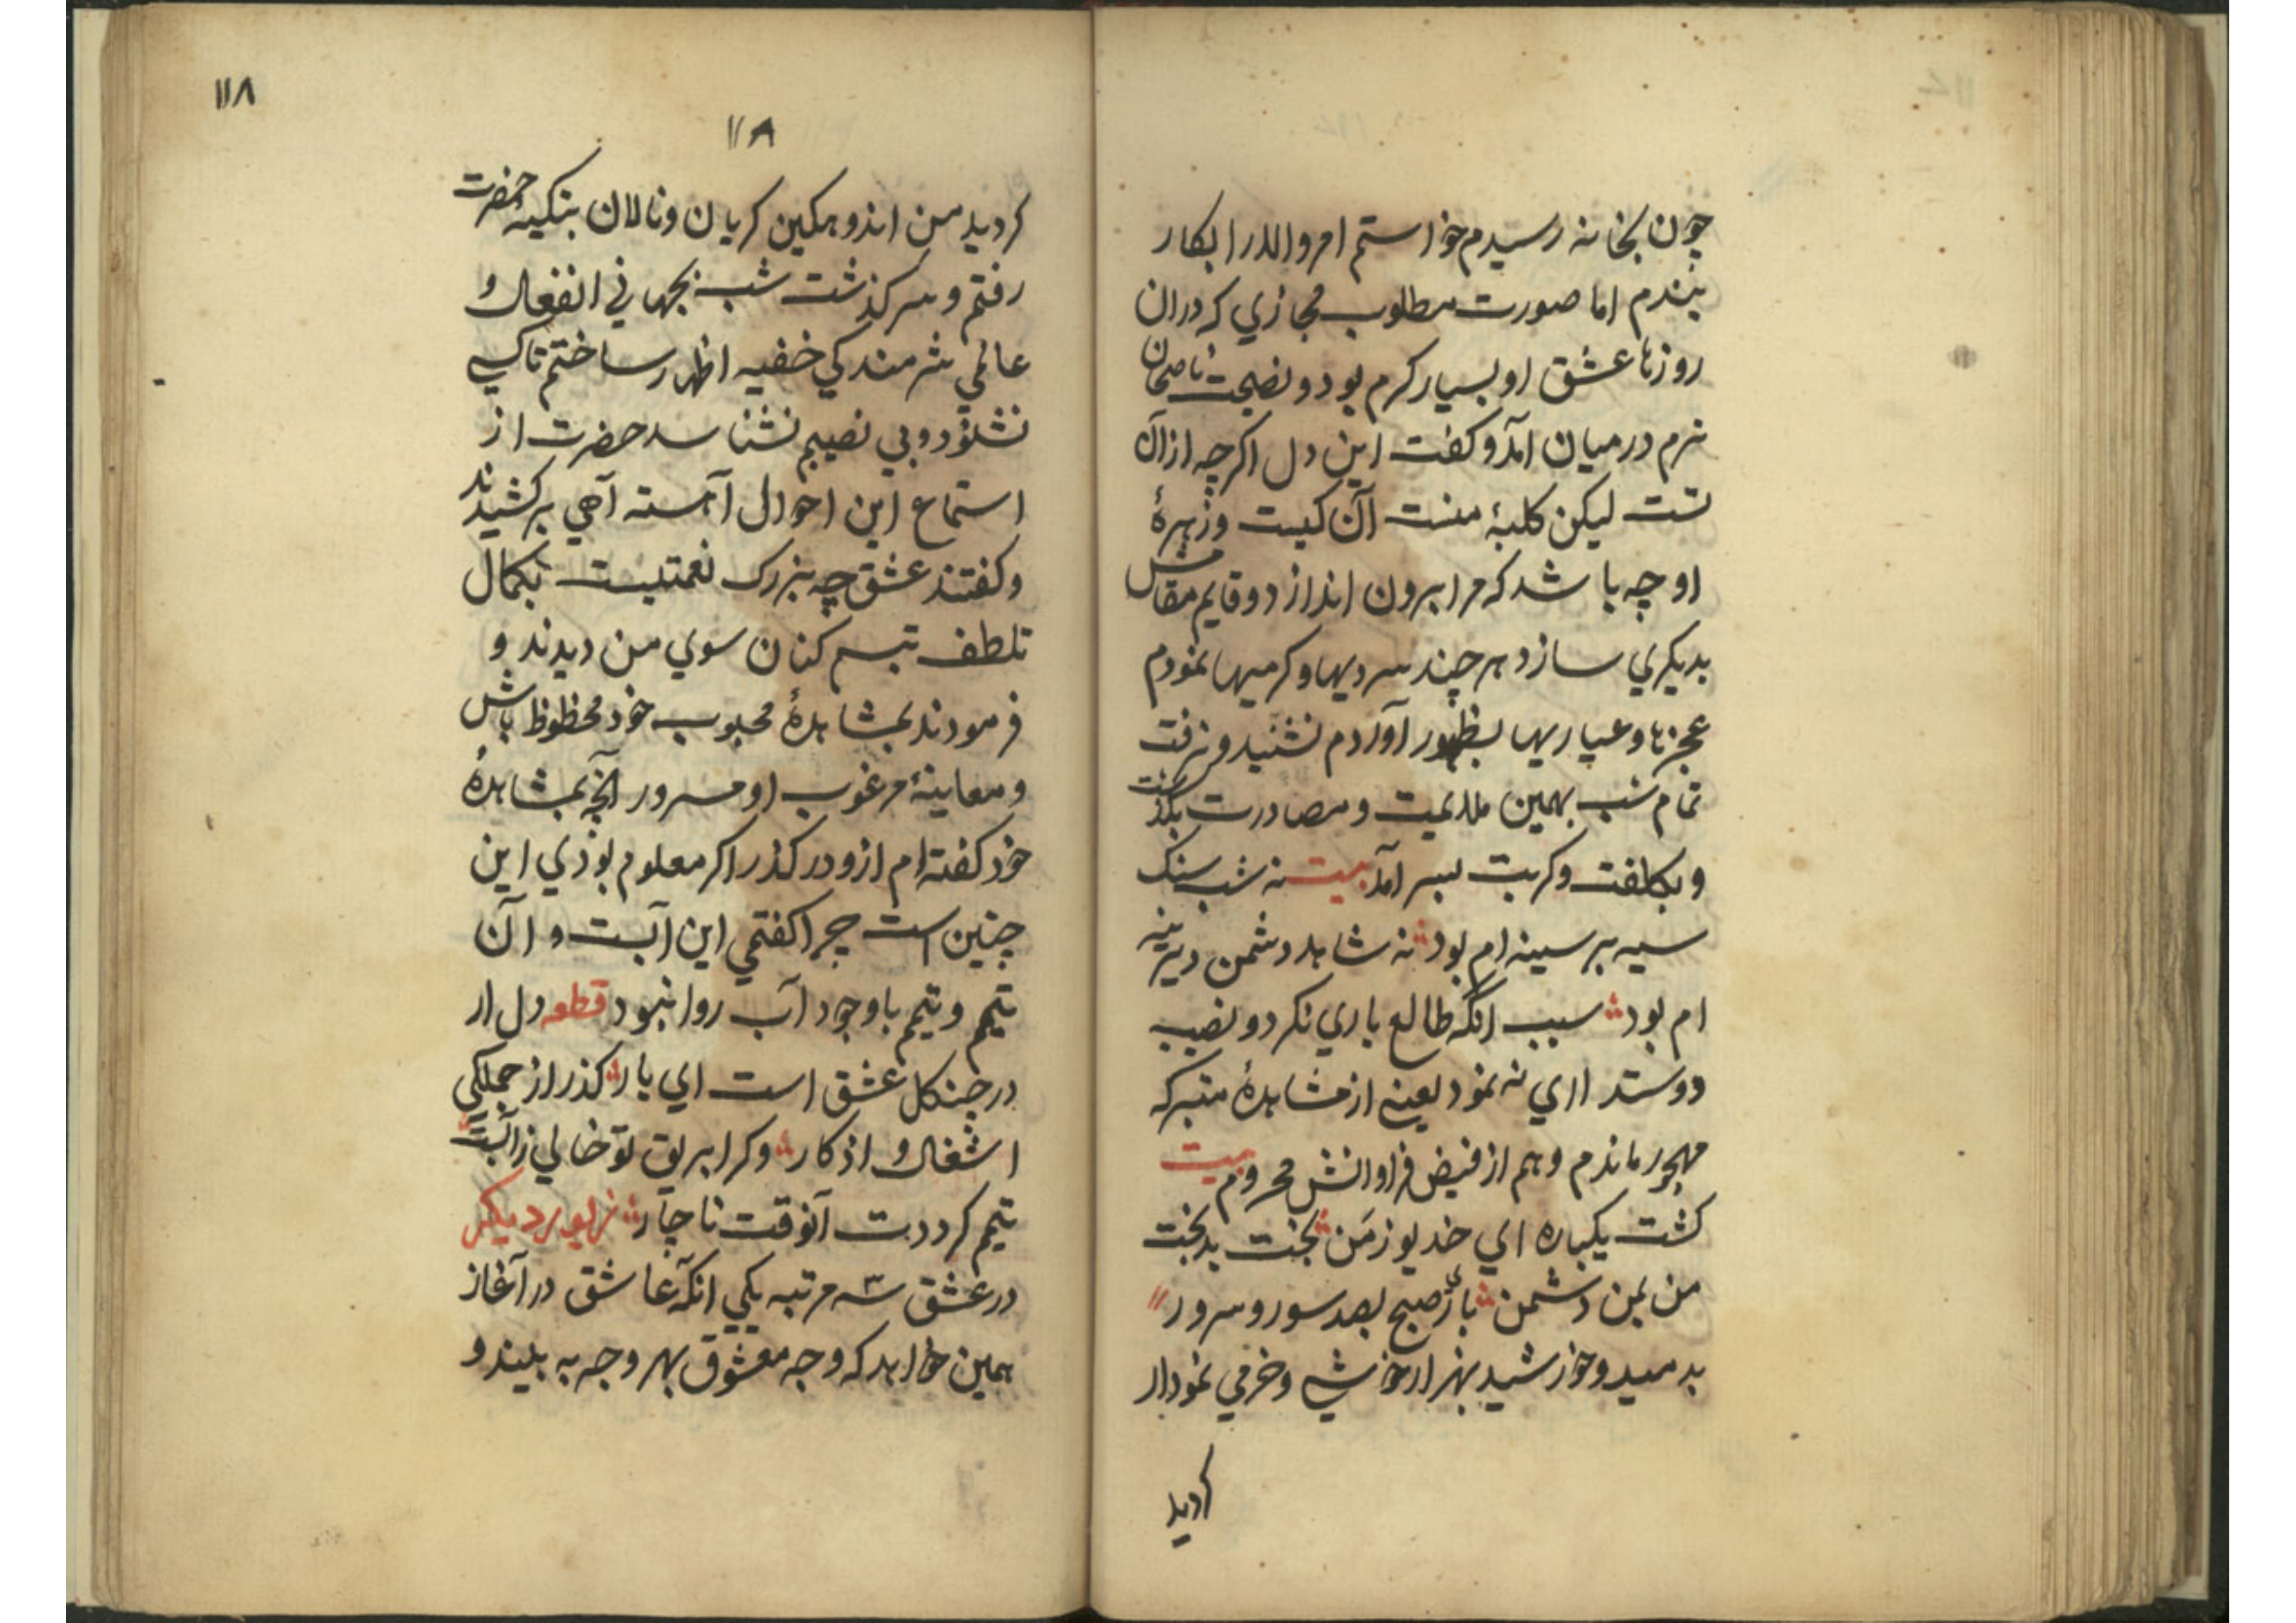 چون بخانه رسیدم خواستم امر والدرا بکار
بندم اما صورت مطلوب مجازي که دران
روزها عشق او بسیار کرم بود و نصیحت ناصحان
نرم درمیان آمد و کفت این دل اکرچه ازان
تست لیکن کلبهٔ منست آن کیست و زهرهٔ
او چه باشد که مرا برون اندازد و قایم مقامش
بدیکري سازد هر چند سردیها و کرمیها نمودم
عجزها و عیاریها بظهور آوردم نشنید و نرفت
تمام شب بهمین ملایمیت و مصادرت بکذشت
و بکلفت و کربت بسر آمد بیت نه شب سنک
سیه بر سینه ام بود نه شاهد دشمن دیرینه
ام بود سبب آنکه طالع یاري نکرد و نصیب
دوستداري نه نمود یعنی از مشاهدهٔ متبرکه
مهجور ماندم و هم از فیض فراوانش محروم بیت
کشت یکباره اي خدیو زمن بخت بدبخت
من بمن دشمن باز صبح بصد سور و سرور
بدمید و خورشید بهزار خوشي و خرمي نمودار
کردید
۱۱۸
۱۱۸
کردید من اندوهکین کریان و نالان بتکیهٔ حضرت
رفتم و سرکذشت شب بجهاني انفعال و
عالمي شرمندکي خفیه اظهار ساختم تا کسي
نشنود و بي نصیبم نشناسد حضرت از
استماع این احوال آهسته آهي برکشیدند
و کفتند عشق چه بزرک نعمتیست بکمال
تلطف تبسم کنان سوي من دیدند و
فرمودند بمشاهدهٔ محبوب خود محظوظ باش
و معاینهٔ مرغوب او مسرور آنچه بمشاهدهٔ
خود کفته ام ازو درکذر اکر معلوم بودي این
چنین است چرا کفتمي این آبست و آن
تیمم و تیمم با وجود آب روا نبود قطعه دل ار
در جنکل عشق است اي یار کذر از جملکي
اشغال و اذکار وکر ابریق تو خالي ز آبست
تیمم کرددت آنوقت ناچار زیور دیکر
در عشق سه مرتبه یکي آنکه عاشق در آغاز
همین خواهد که وجه معشوق بهر وجه به بیند و